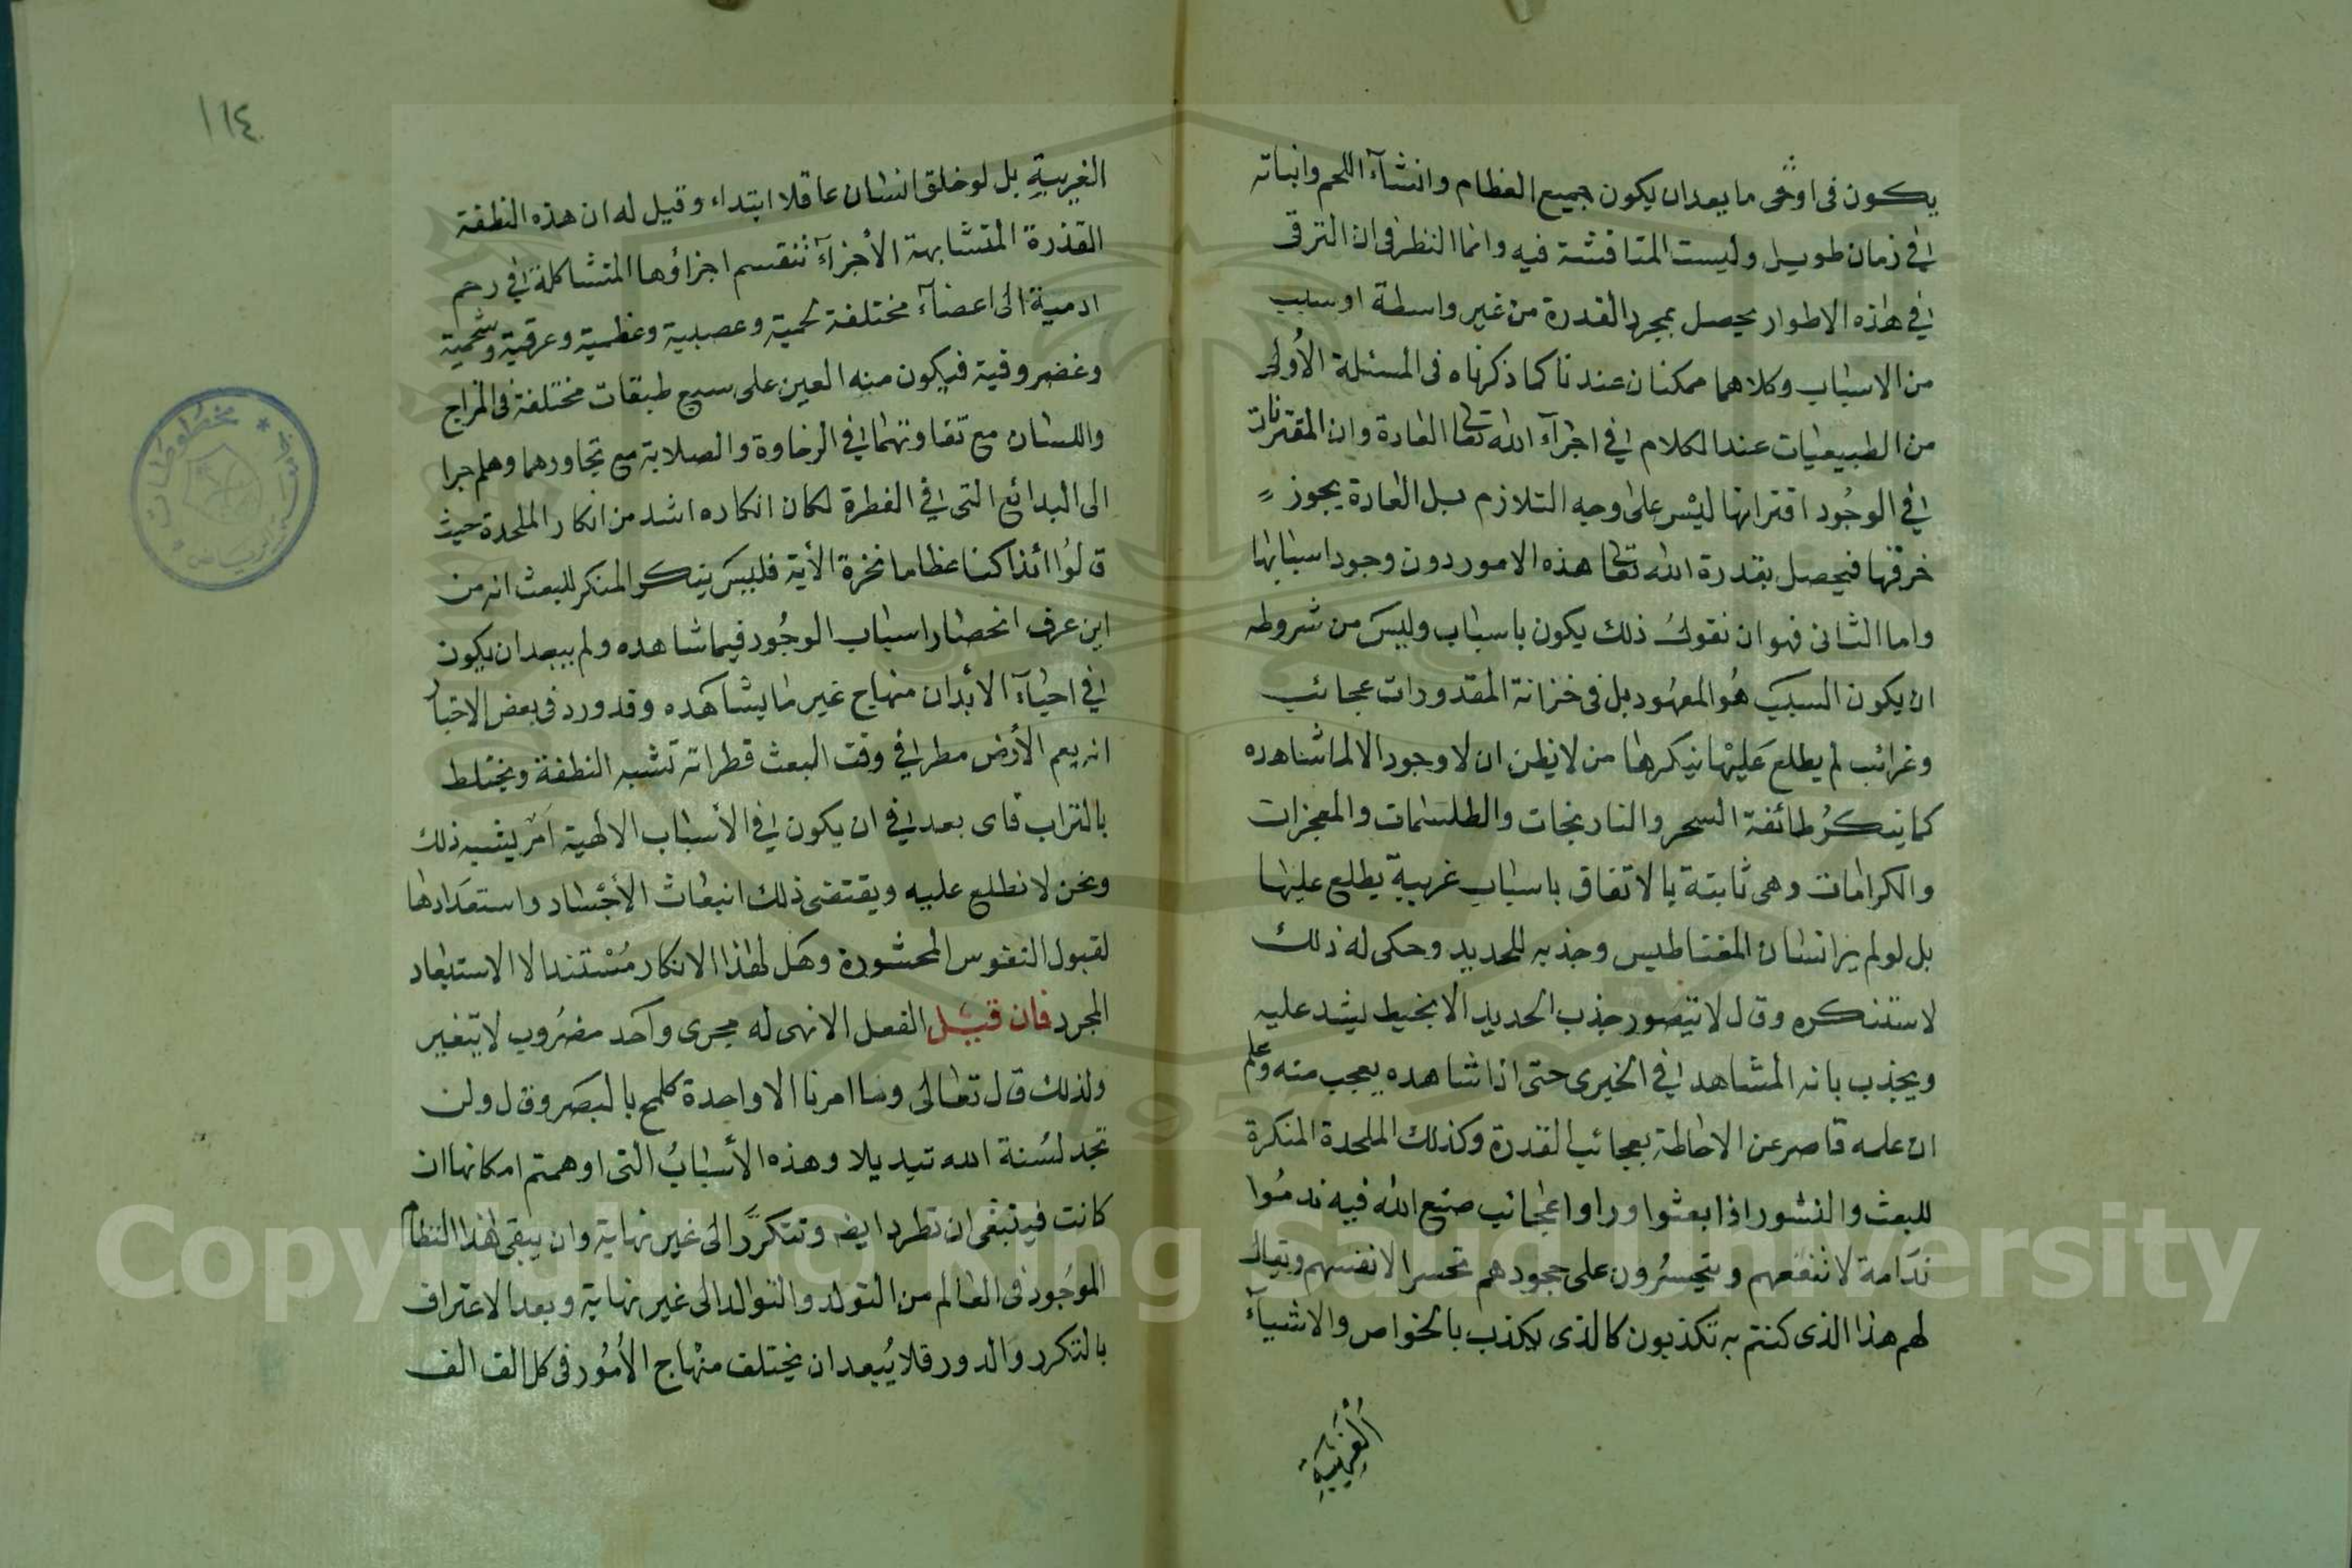 يكون فى اوحى ما يعد ان يكون جميع العظام وانشآء اللحم وانباته
فى زمان طويل وليست المناقشة فيه وانما النظر فى ان الترقى
فى هذه الاطوار يحصل بمجرد القدرة من غير واسطة او سبب
من الاسباب وكلاهما ممكنان عندنا كما ذكرناه فى المسئلة الأولى
من الطبيعيات عند الكلام فى اجرآء الله تعا العادة وان المقترنات
فى الوجُود اقترانها ليْس على وجه التلازم بل العادة يجوز
خرقها فيحصل بقدرة الله تعا هذه الامور دون وجود اسبابها
واما الثانى فهو ان نقولُ ذلك يكون باسباب وليسَ من شروطه
ان يكون السببَ هُو المعهُود بل فى خزانة المقدورات عجائب
وغرائب لم يطلع عليْها ينكرها من لا يظن ان لا وجود الا لما شاهده
كما ينكرُ طائفة السحر والنارنجات والطلسمات والمعجزات
والكرامات وهى ثابتة بالاتفاق باسباب غريبة يطلع عليها
بل لو لم ير انسان المغناطيس وجذبه للحديد وحكى له ذلك
لاستنكره وقال لا يتصور جذب الحديد الا بخيط يشد عليه
ويجذب بانه المشاهد فى الخيرى حتى اذا شاهده يعجب منه وعلم
ان علمه قاصر عن الاحاطة بعجائب القدرة وكذلك الملحدة المنكرة
للبعث والنشور اذا بعثوا وراوا عجائب صنع الله فيه ندمُوا
ندَامة لا تنفعهم ويتحسرُون على جحودهم تحسرا لانفسهم ويقال
لهم هذا الذى كنتم به تكذبون كالذى يكذب بالخواص والاشيآء
الغريبة
١١٤
الغريبةِ بل لو خلق انسان عاقلا ابتداء وقيل له ان هذه النطفة
القذرة المتشابهة الأجزآء تنقسم اجزاؤها المتشاكلة فى رحم
ادمية الى اعضآء مختلفة لحمية وعصبية وعظمية وعرقية وشحمية
وغضروفية فيكون منه العين على سبع طبقات مختلفة فى المزاج
واللسان مع تفاوتهما فى الرخاوة والصلابة مع تجاورهما وهلم جرا
الى البدائع التى فى الفطرة لكان انكاره اشد من انكار الملحدة حيث
قالوُا أئذا كنا عظاما نخرة الأية فليسَ يتفكر المنكر للبعث انه من
اين عرف انحصار اسباب الوجُود فيما شاهده ولم يبعد ان يكون
فى احيآء الأبدان منهاج غير ما يشاهده وقد ورد فى بعض الاخبار
انه يعم الأرض مطر فى وقت البعث قطراته تشبه النطفة ويختلط
بالتراب فاى بعد فى ان يكون فى الأسباب الالهية امر يشبه ذلك
ونحن لا نطلع عليه ويقتضى ذلك انبعاث الأجْساد واستعدَادها
لقبول النفوس المحشورة وهَل لهذا الانكار مُسْتند الا الاستبعاد
المجرد فان قيل الفعل الالهى له مجرى واحد مضرُوب لا يتغير
ولذلك قال تعالى وما امرنا الا واحدة كلمح بالبصَر وقال ولن
تجد لسُنة الله تبديلا وهذه الأسبابُ التى اوهمتم امكانها ان
كانت فينبغى ان تطرد ايضه وتتكرَّر الى غير نهاية وان يبقى هذا النظام
الموجُود فى العالم من التولد والتوالد الى غير نهاية وبعد الاعتراف
بالتكرر وَالدور فلا يُبعد ان يختلف منهاج الأمُور فى كل الف الف
Copyright © King Saud University